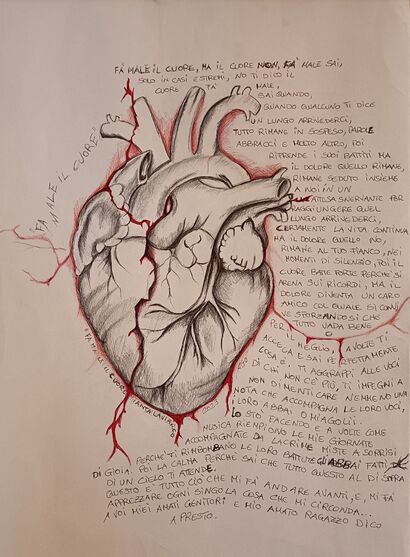 FÀ MALE IL CUORE, MA IL CUORE NON FÀ MALE SAI,
SOLO IN CASI ESTREMI, NO TI DICO IL
CUORE FÀ MALE,
SAI QUANDO,
QUANDO QUALCUNO TI DICE
UN LUNGO ARRIVEDERCI,
TUTTO RIMANE IN SOSPESO, PAROLE
ABBRACCI E MOLTO ALTRO, POI
RIPRENDE I SUOI BATTITI MA
IL DOLORE QUELLO RIMANE,
RIMANE SEDUTO INSIEME
A NOI IN UN
ATTESA SNERVANTE PER
RAGGIUNGERE QUEL
LUNGO ARRIVEDERCI,
CERTAMENTE LA VITA CONTINUA
MA IL DOLORE QUELLO NO,
RIMANE AL TUO FIANCO, NEI
MOMENTI DI SILENZIO, POI IL
CUORE BATTE FORTE PERCHÈ SI
ARENA SUI RICORDI, MA IL
DOLORE DIVENTA UN CARO
AMICO COL QUALE SI CONVI
VE SFORZANDOSI CHE
TUTTO VADA BENE
O
PER IL MEGLIO, A VOLTE TI
ACCECA E SAI PERFETTAMENTE
COSA È. TI AGGRAPPI ALLE VOCI
DI CHI NON C'È PIÙ, TI IMPEGNI A
NON DIMENTICARE NEMMENO UNA
NOTA CHE ACCOMPAGNA LE LORO VOCI,
I LORO ABBAI O MIAGOLII.
LO STÒ FACENDO E A VOLTE COME
MUSICA RIEMPIONO LE MIE GIORNATE
ACCOMPAGNATE DA LACRIME MISTE A SORRISI
DI GIOIA. PERCHÈ TI RIMBOMBANO LE LORO BATTUTE GLI ABBAI FATTI
POI LA CALMA PERCHÈ SAI CHE TUTTO QUESTO AL DI SOPRA
DI UN CIELO TI ATTENDE.
QUESTO È TUTTO CIÒ CHE MI FÀ ANDARE AVANTI, E, MI FÀ
APPREZZARE OGNI SINGOLA COSA CHE MI CIRCONDA...
A VOI MIEI AMATI GENITORI E MIO AMATO RAGAZZO DICO
A PRESTO.
FÀ MALE IL CUORE"
"FÀ MALE IL CUORE"
2023